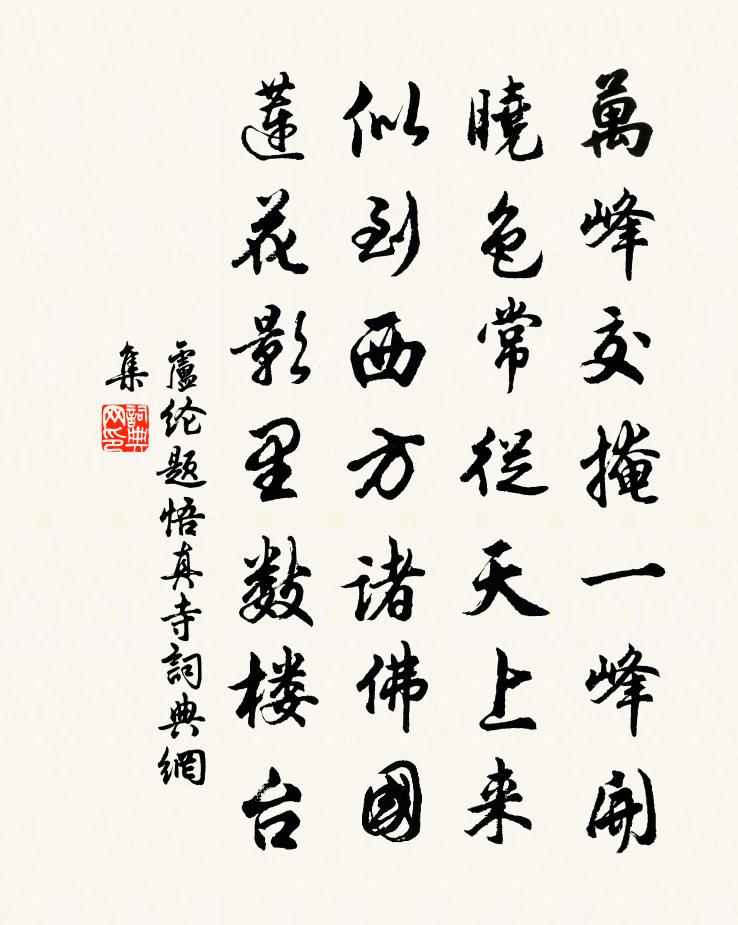 萬峰交掩一峰開
曉色常從天上来
似到西方諸佛國
蓮花影里數楼台
盧纶题悟真寺詞典網
集
詞典
网印